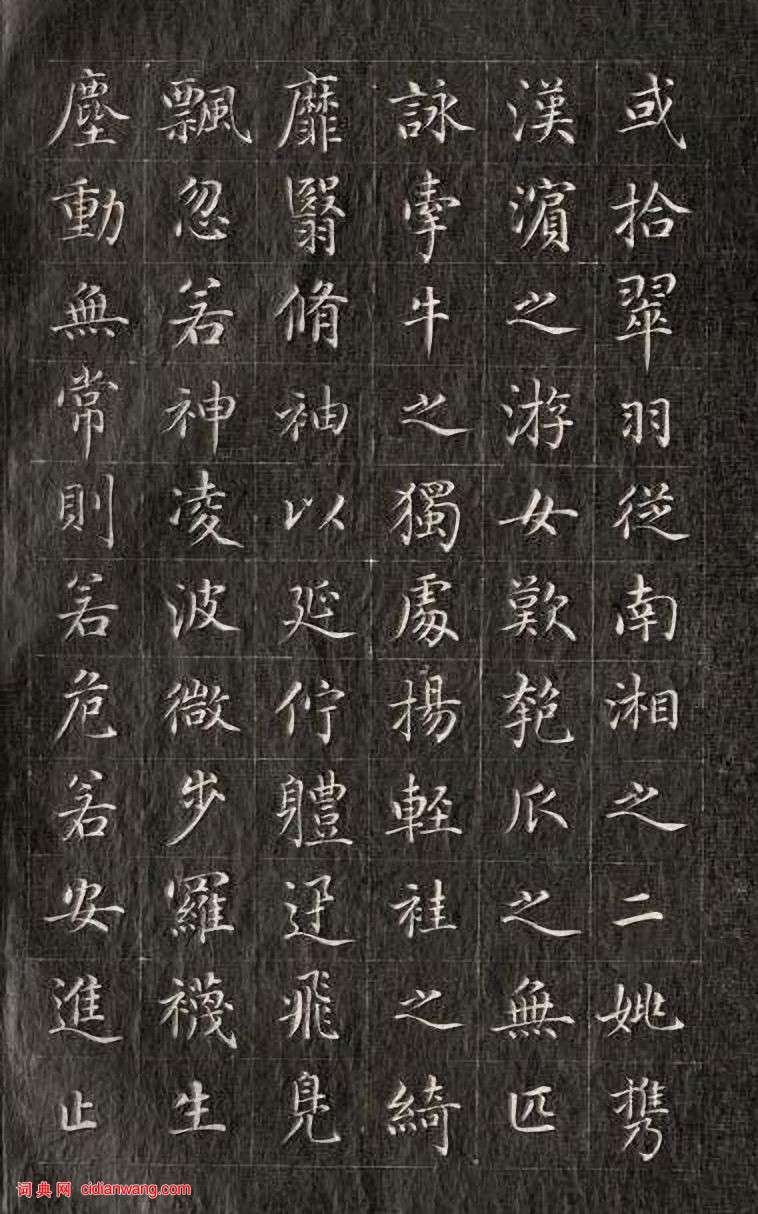 或拾翠羽從南湘之二姚攜
漢濱之游女歎匏瓜之無匹
詠牽牛之獨處揚輕袿之綺
靡翳脩袖以延佇體迅飛鳧
飄忽若神凌波微步羅襪生
塵動無常則若危若安進止
词典网 cidianwang.com